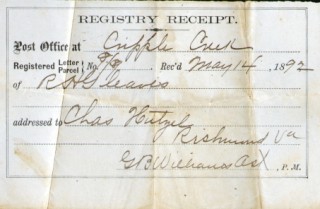 REGISTRY RECEIPT.
Post Office at Cripple Creek
Registered Letter Parcel No. Rec'd May 14, 1892
of R H Gleaves
addressed to Chas Hutzel
Richmond Va
G B Williams P. M.